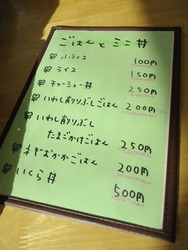 ごはんとミニ丼
小ライス 100円
ライス 150円
チャーシュー丼 250円
いわし削りぶしごはん 200円
いわし削りぶし
たまごかけごはん 250円
ネギおかかごはん 200円
いくら丼 500円